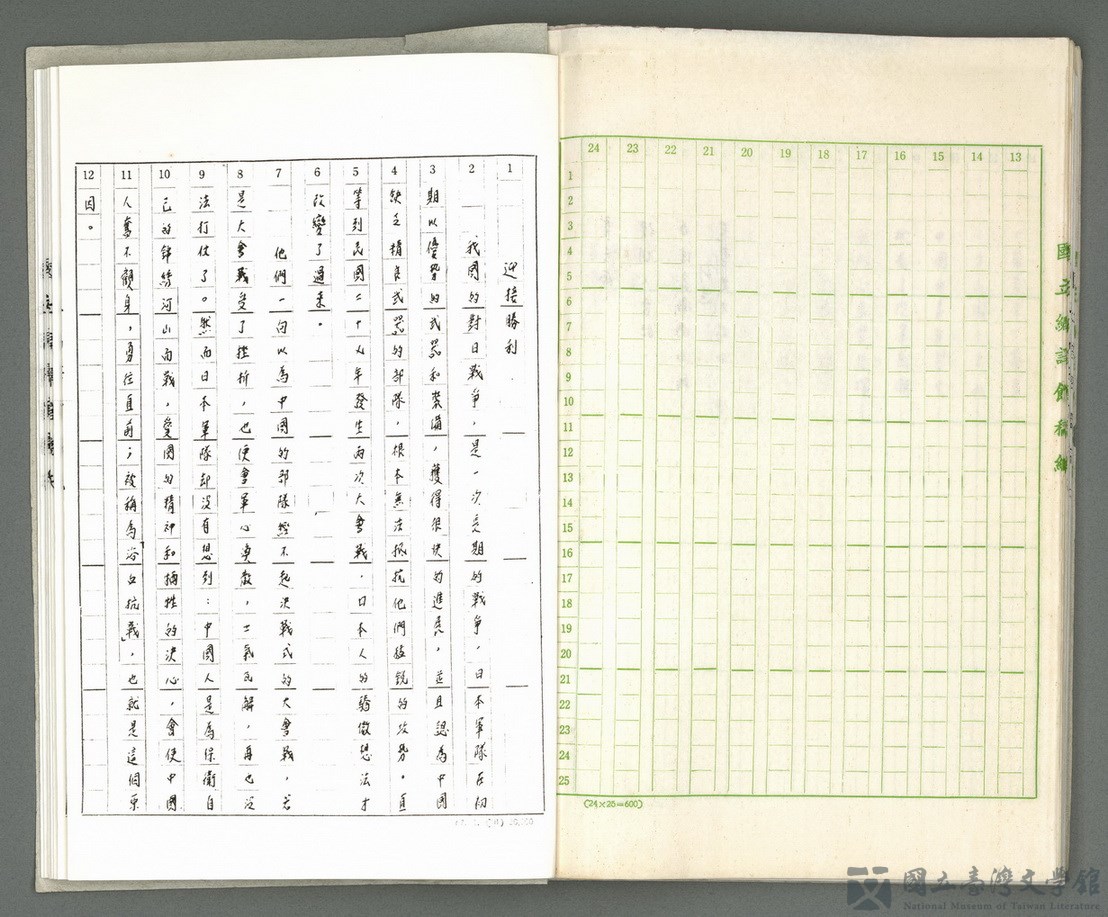 國立編譯館稿紙
24 23 22 21 20 19 18 17 16 15 14 13
1 2 3 4 5 6 7 8 9 10 11 12 13 14 15 16 17 18 19 20 21 22 23 24 25
(24×25=600)
1 迎接勝利
2 我國的對日戰爭，是一次長期的戰爭，日本軍隊在初
3 期以優勢的武器和裝備，獲得很快的進展，並且認為中國
4 缺乏精良武器的部隊，根本無法抵抗他們猛銳的攻勢。直
5 等到民國二十八年發生兩次大會戰，日本人的驕傲想法才
6 改變了過來。
7 他們一向以為中國的部隊經不起決戰式的大會戰，若
8 是大會戰受了挫折，也便會軍心渙散，士氣瓦解，再也沒
9 法打仗了。然而日本軍隊卻沒有想到：中國人是為保衛自
10 己的錦繡河山而戰，愛國的精神和犧牲的決心，會使中國
11 人奮不顧身，勇往直前；被稱為「浴血抗戰」，也就是這個原
12 因。
國立臺灣文學館
National Museum of Taiwan Literature